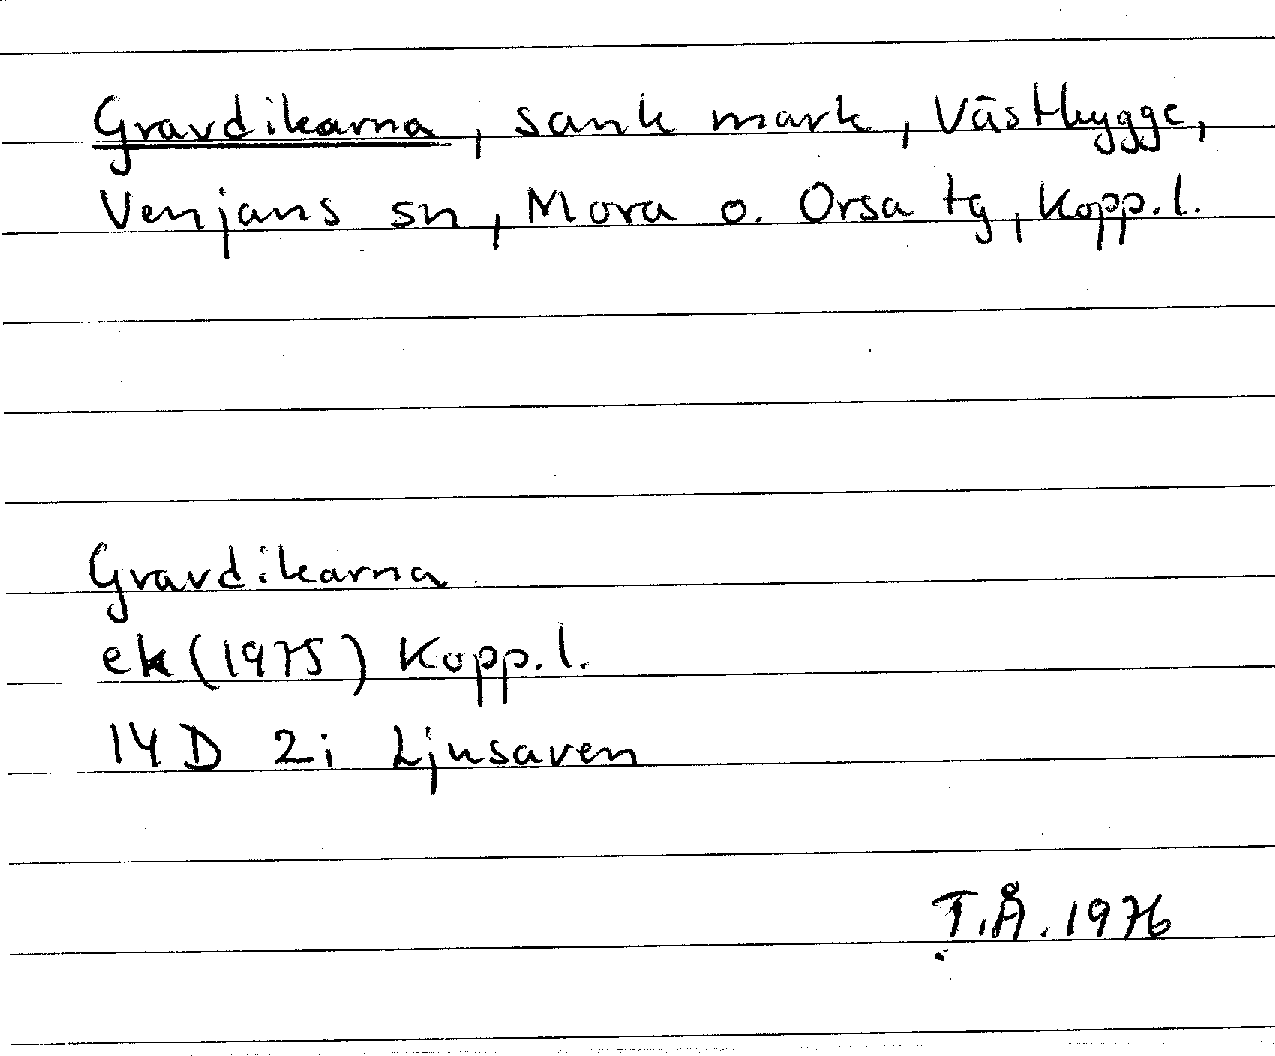 Gravdikarna, sank mark, Västbygge,
Venjans sn, Mora o. Orsa tg, Kopp.l.
Gravdikarna
ek (1975) Kopp.l.
14 D 2i Ljusaven
T.Å. 1976